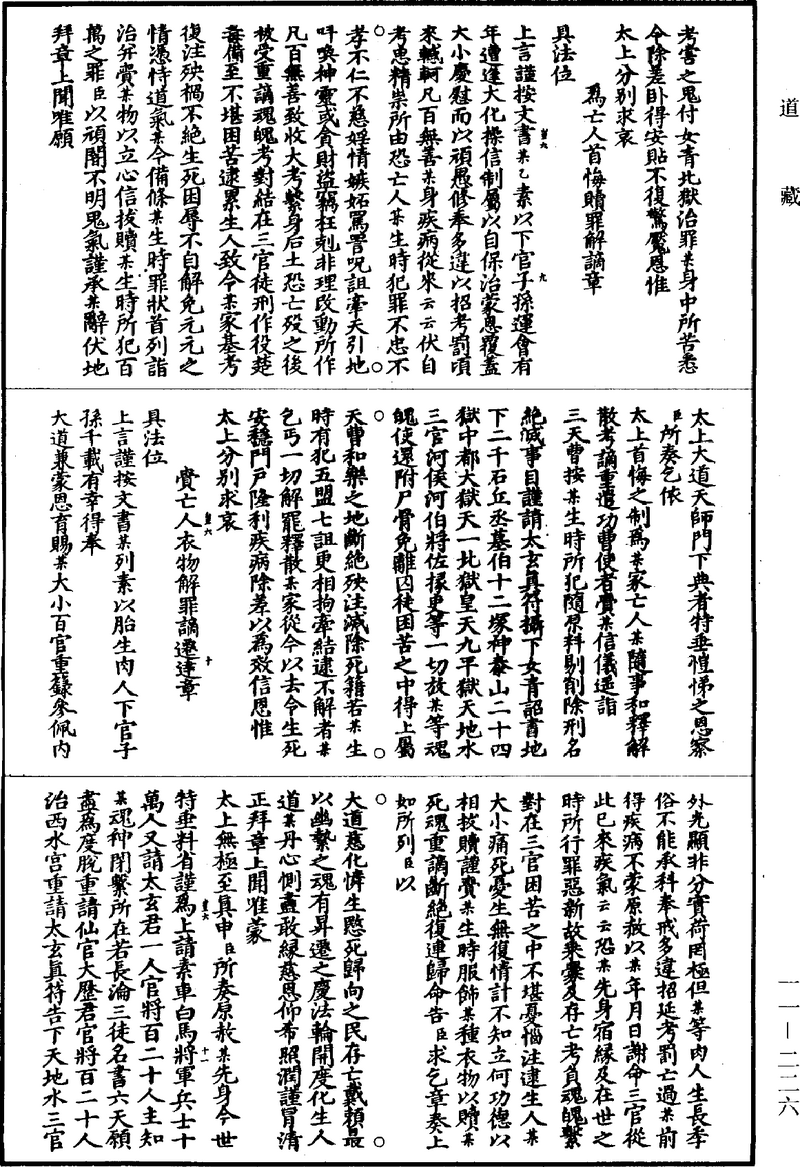 道藏
一一—二二六
考害之鬼付女青北獄治罪某身中所苦悉
令除差卧得安貼不復驚魘恩惟
太上分別求哀
為亡人首悔贖罪解謫章
具法位
上言謹按文書某乙素以下官子孫運會有
年遭逢大化操信制屬以自保治蒙恩覆蓋
大小慶慰而以頑愚修奉多違以招考罰頃
來轗軻凡百無善某身疾病從來云云伏自
考思精祟所由恐亡人某生時犯罪不忠不
孝不仁不慈婬情嫉妬罵詈呪詛牽天引地
呼喚神靈或貪財盜竊枉剋非理改動所作
凡百無善致收大考繫身后土恐亡歿之後
被受重謫魂魄考對結在三官徒刑作役楚
毒備至不堪困苦逮累生人致令某家墓考
復注殃禍不絕生死困辱不自解免元元之
情憑恃道氣某令備條某生時罪狀首列詣
治并賫某物以立心信拔贖某生時所犯百
萬之罪臣以頑闇不明鬼氣謹承某辭伏地
拜章上聞唯願
太上大道天師門下典者特垂愷悌之恩察
臣所奏乞依
太上首悔之制為某家亡人某隨事和釋解
散考謫重遣功曹使者賫某信儀遥詣
三天曹按某生時所犯隨原料剔削除刑名
絶滅事目謹請太玄真符攝下女青詔書地
下二千石丘丞墓伯十二塚神泰山二十四
獄中都大獄天一北獄皇天九平獄天地水
三官河侯河伯將佐掾吏等一切放某等魂
魄使還附尸骨免離囚徒困苦之中得上屬
天曹和樂之地斷絶殃注滅除死籍若某生
時有犯五盟七詛更相拘牽結逮不解者某
乞丐一切解罷釋散某家從今以去令生死
安穩門戶隆利疾病除差以為效信恩惟
太上分別求哀
賫亡人衣物解罪謫遷達章
具法位
上言謹按文書某列素以胎生肉人下官子
孫千載有幸得奉
大道兼蒙恩育賜某大小百官重籙參佩內
外光顯非分實荷罔極但某等肉人生長季
俗不能承科奉戒多違招延考罰亡過某前
得疾病不蒙原赦以某年月日謝命三官從
此已來疾氣云云恐某先身宿緣及在世之
時所行罪惡新故乘釁及存亡考負魂魄繫
對在三官困苦之中不堪憂惱注逮生人某
大小痛死憂生無復情計不知立何功德以
相救贖謹賫某生時服飾某種衣物以贖某
死魂重謫斷絶復連歸命告臣求乞章奏上
如所列臣以
大道慈化憐生愍死歸向之民存亡戴賴最
以幽縶之魂有昇遷之慶法輪開度化生人
道某丹心惻盡敢緣慈恩仰希照潤謹冒清
正拜章上聞唯蒙
太上無極至真申臣所奏原赦某先身今世
特垂料省謹為上請素車白馬將軍兵士十
萬人又請太玄君一人官將百二十人主知
某魂神閉繫所在若長淪三徒名書六天願
盡為度脫重請仙官大歷君官將百二十人
治西水宫重請太玄真符告下天地水三官